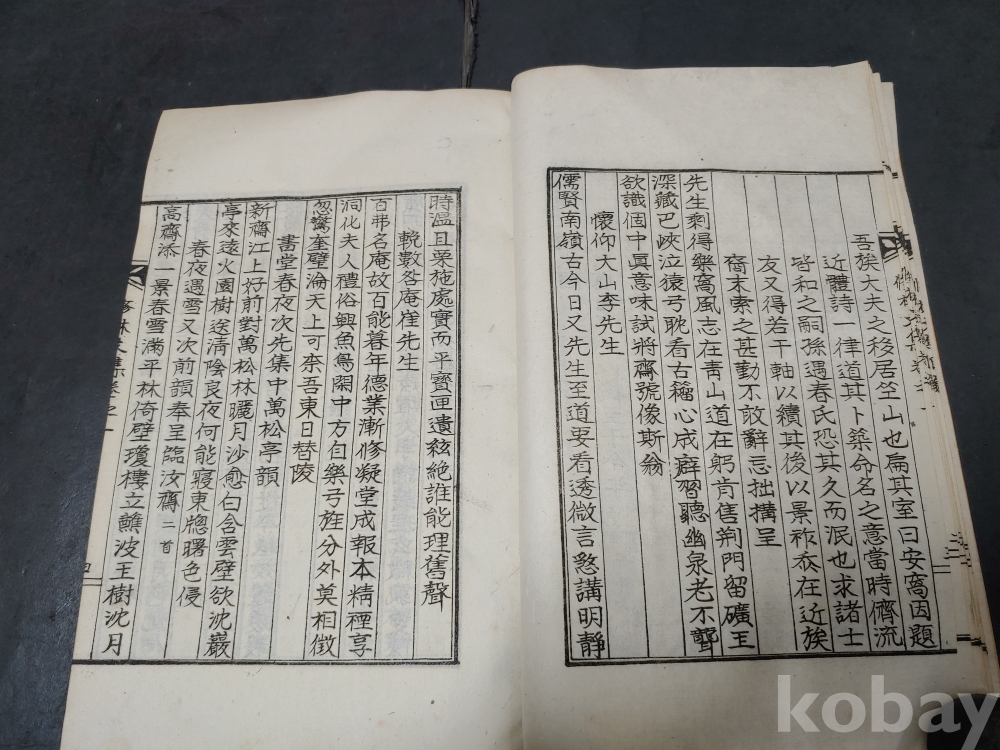 吾族大夫之移居竺山也扁其室曰安窩因題
近體詩一律道其卜築命名之意當時儕流
皆和之嗣孫遇春氏恐其久而泯也求諸士
友又得若干軸以續其後以景祚忝在近族
裔末索之甚勤不敢辭忘拙搆呈
先生剩得樂窩風志在靑山道在躬肯售荆門留礦玉
深藏巴峽泣猿弓耽看古稿心成癖習聽幽泉老不聾
欲識個中眞意味試將齋號像斯翁
懷仰大山李先生
儒賢南嶺古今日又先生至道要看透微言慇講明靜
時溫且栗施處實而平寶匣遺絃絶誰能理舊聲
輓數咎庵崔先生
百弗名庵故百能暮年德業漸修凝堂成報本精禋享
洞化夫人禮俗興魚鳥閑中方自樂弓旌分外莫相徵
忽驚奎璧淪天上可柰吾東日替陵
書堂春夜次先集中萬松亭韻
新齋江上好前對萬松林曬月沙愈白含雲壁欲沈巖
亭來遠火園樹送淸陰良夜何能寢東牕曙色侵
春夜遇雪又次前韻奉呈臨汝齋 二首
高齋添一景春雪滿平林倚壁瓊樓立蘸波玉樹沈月